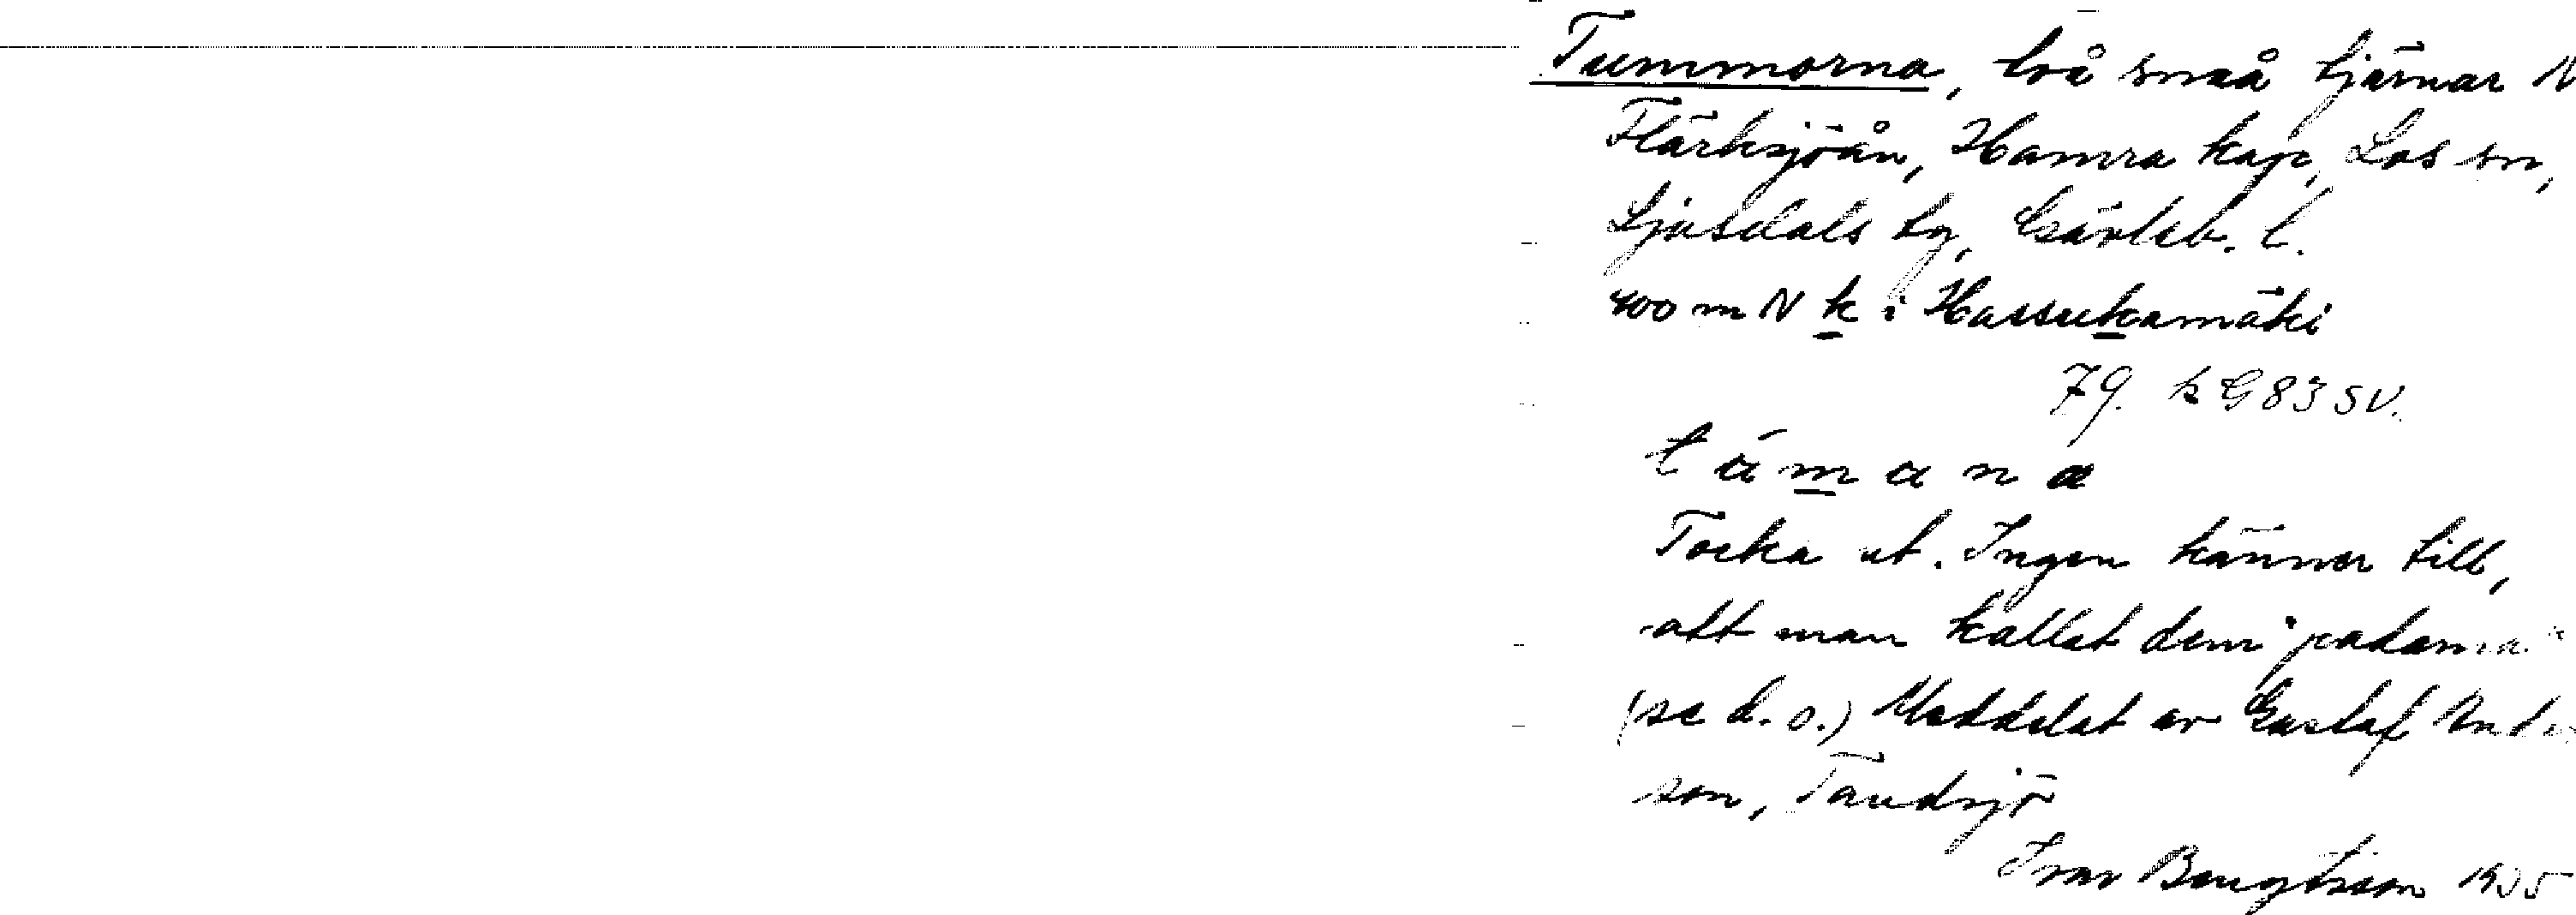 Tummorna, två små tjärnar N
Flärksjöån, Hamra kap, Los sn,
Ljusdals tg, Gävleb. l.
400 m N k i Hassukamäki
79. k G83 SV.
t ú m a n a
Torka ut. Ingen känner till,
att man kallat dem "padarna"
(se d. o.) Meddelat av Gustaf Anders
son, Tandsjö
Ivar Bengtsson 1935